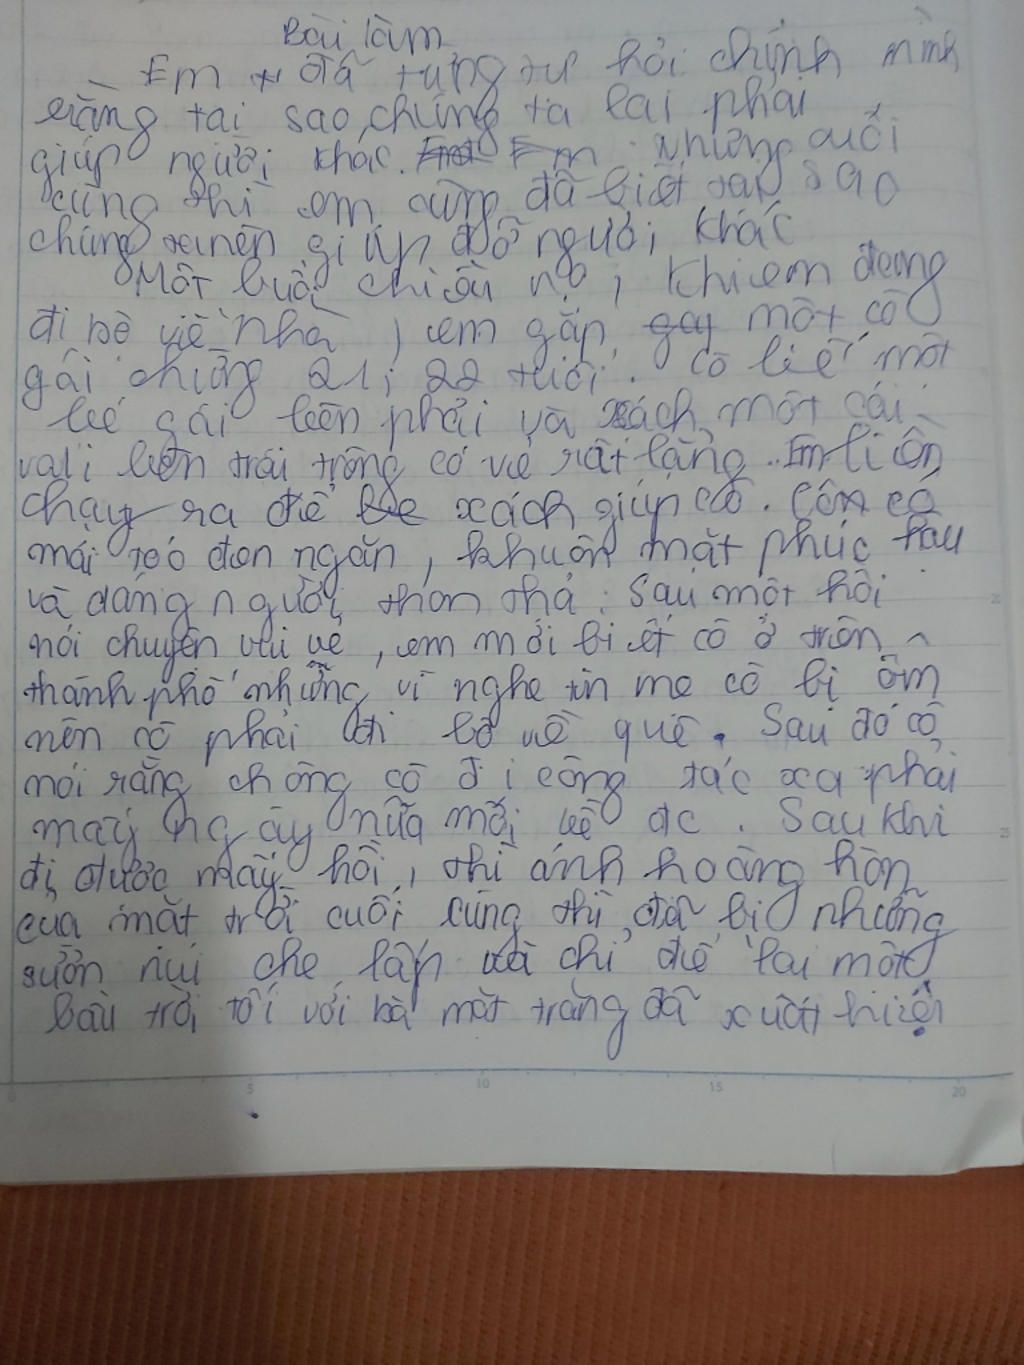 Bài làm
Em đã từng tự hỏi chính mình
rằng tại sao chúng ta lại phải
giúp người khác. Em nhưng cuối
cùng thì em cũng đã biết tại sao
chúng ta nên giúp đỡ người khác
Một buổi chiều nọ, khi em đang
đi bộ về nhà, em gặp một cô
gái chừng 21, 22 tuổi. cô bế một
bé gái bên phải và xách một cái
vali bên trái trông có vẻ rất lặng. Em liền
chạy ra để xách giúp cô. Cô có
mái tóc đen ngắn, khuôn mặt phúc hậu
và dáng người thon thả. Sau một hồi
nói chuyện vui vẻ, em mới biết cô ở trên
thành phố nhưng vì nghe tin mẹ cô bị ốm
nên cô phải đi bộ về quê. Sau đó cô
nói rằng chồng cô đi công tác xa phải
mấy ngày nữa mới về đc. Sau khi
đi được mấy hồi, thì ánh hoàng hôn
của mặt trời cuối cùng thì đã bị những
sườn núi che lấp và chỉ để lại một
bầu trời tối với bà mặt trăng đã xuất hiện